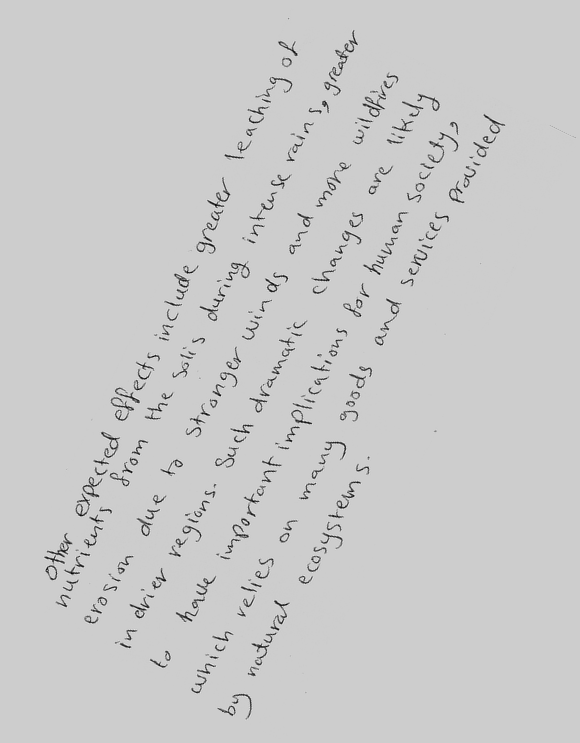 Other expected effects include greater leaching of
nutrients from the solis during intense rains, greater
erosion due to stronger winds and more wildfires
in drier regions. Such dramatic changes are likely
to have important implications for human society,
which relies on many goods and services provided
by natural ecosystems.